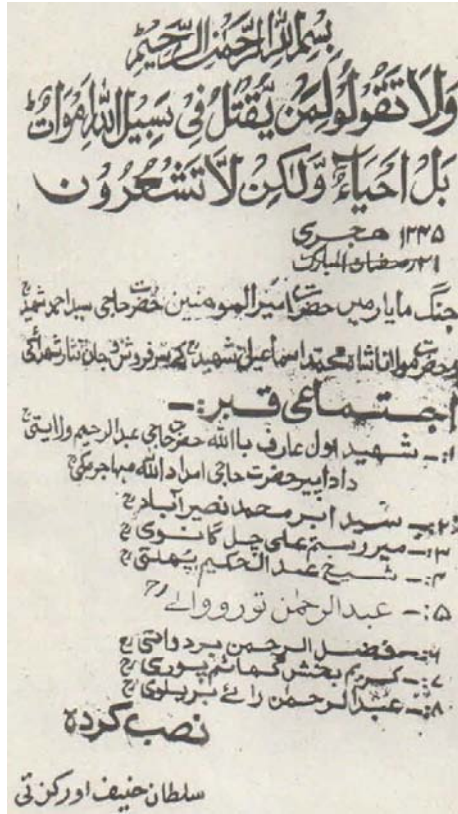 بسم الله الرحمن الرحيم
وَلَا تَقُولُو لِمَن يُّقتَلُ فِى سَبِيلِ اللهِ اَمْوَاتٌ
بَل اَحيَاءٌ وَّلٰكِن لَّا تَشعُرُون
۱۲۴۵ هجری
۲۱ رمضان المبارک
جنگ مایار میں حضرت امیر المومنین حضرت حاجی سید احمد شہید
و حضرت مولانا شاہ محمد اسماعیل شہید کے سرفروش و جان نثار شہدا کی
اجتماعی قبر :-
۱:- شہید اول عارف باالله حضرت حاجی عبدالرحیم ولایتی
دادا پیر حضرت حاجی امداد الله مہاجر مکی
۲:- سید ابو محمد نصیر آبادی
۳:- میر رستم علی چل گانوی
۴:- شیخ عبدالحکیم پھلتی
۵:- عبدالرحمٰن تورووالے
۶:- فضل الرحمن بردوانی
۷:- کریم بخش گھاٹم پوری
۸:- عبدالرحمٰن رائے بریلوی
نصب کردہ
سلطان حنیف اورکزئی